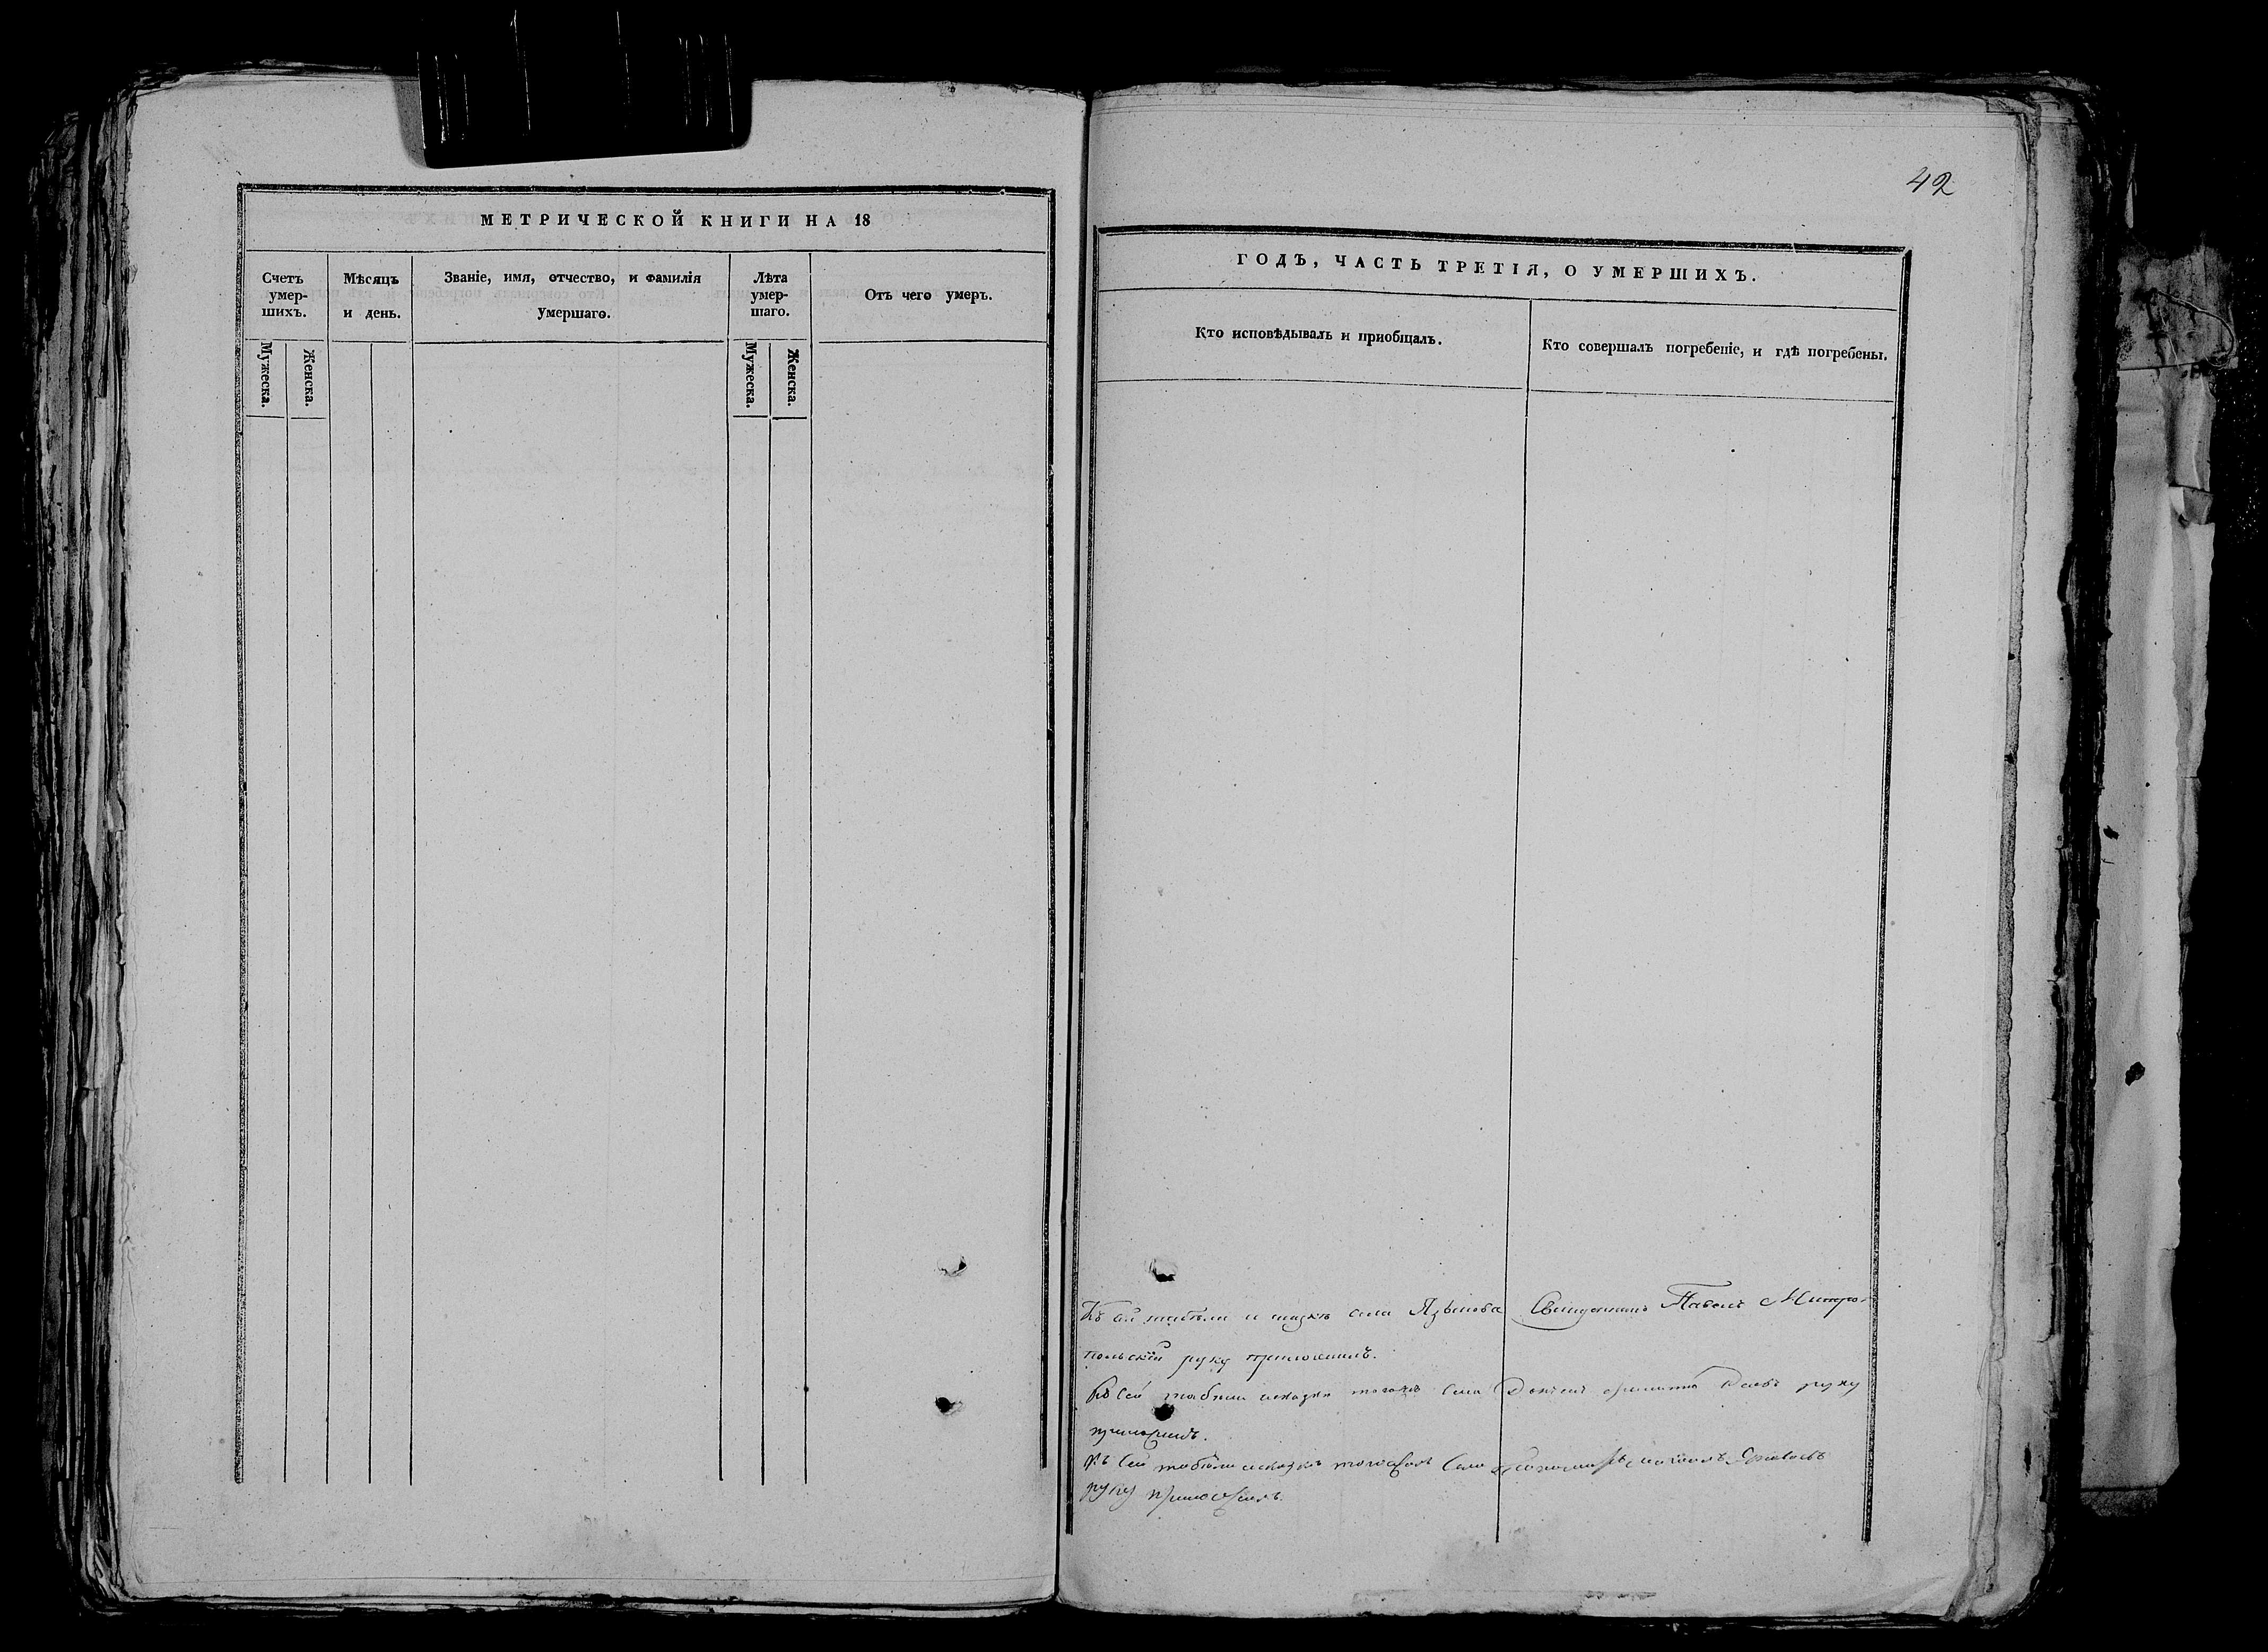 МЕТРИЧЕСКОЙ КНИГИ НА 18
Счетъ умер-шихъ.
Мужеска.
Женска.
Мѣсяцъ и день.
Званіе, имя, отчество, и фамилія умершаго.
Лѣта умер-шаго.
Мужеска.
Женска.
Отъ чего умеръ.
42
ГОДЪ, ЧАСТЬ ТРЕТІЯ, О УМЕРШИХЪ.
Кто исповѣдывалъ и приобщалъ.
Кто совершалъ погребеніе, и гдѣ погребены.
Къ сей табели и сказкѣ села Языкова Священникъ Павелъ Митро-
польскій руку приложилъ.
Къ сей табели и сказки тогожъ села руку
приложилъ.
Къ сей табели и сказкѣ тогожъ села
руку приложилъ.